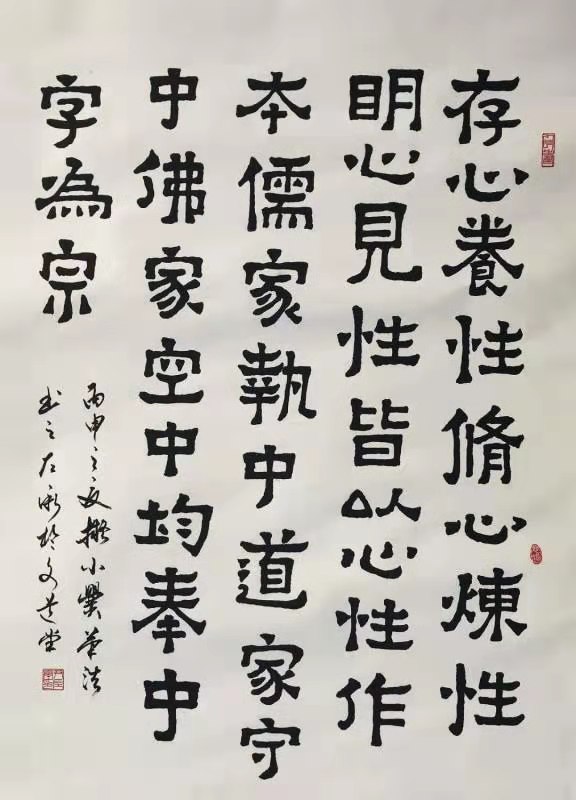 存心養性脩心煉性
明心見性皆以心性作
本儒家執中道家守
中佛家空中均奉中
字為宗
丙申之夏擬小爨筆法
書之於文昌堂